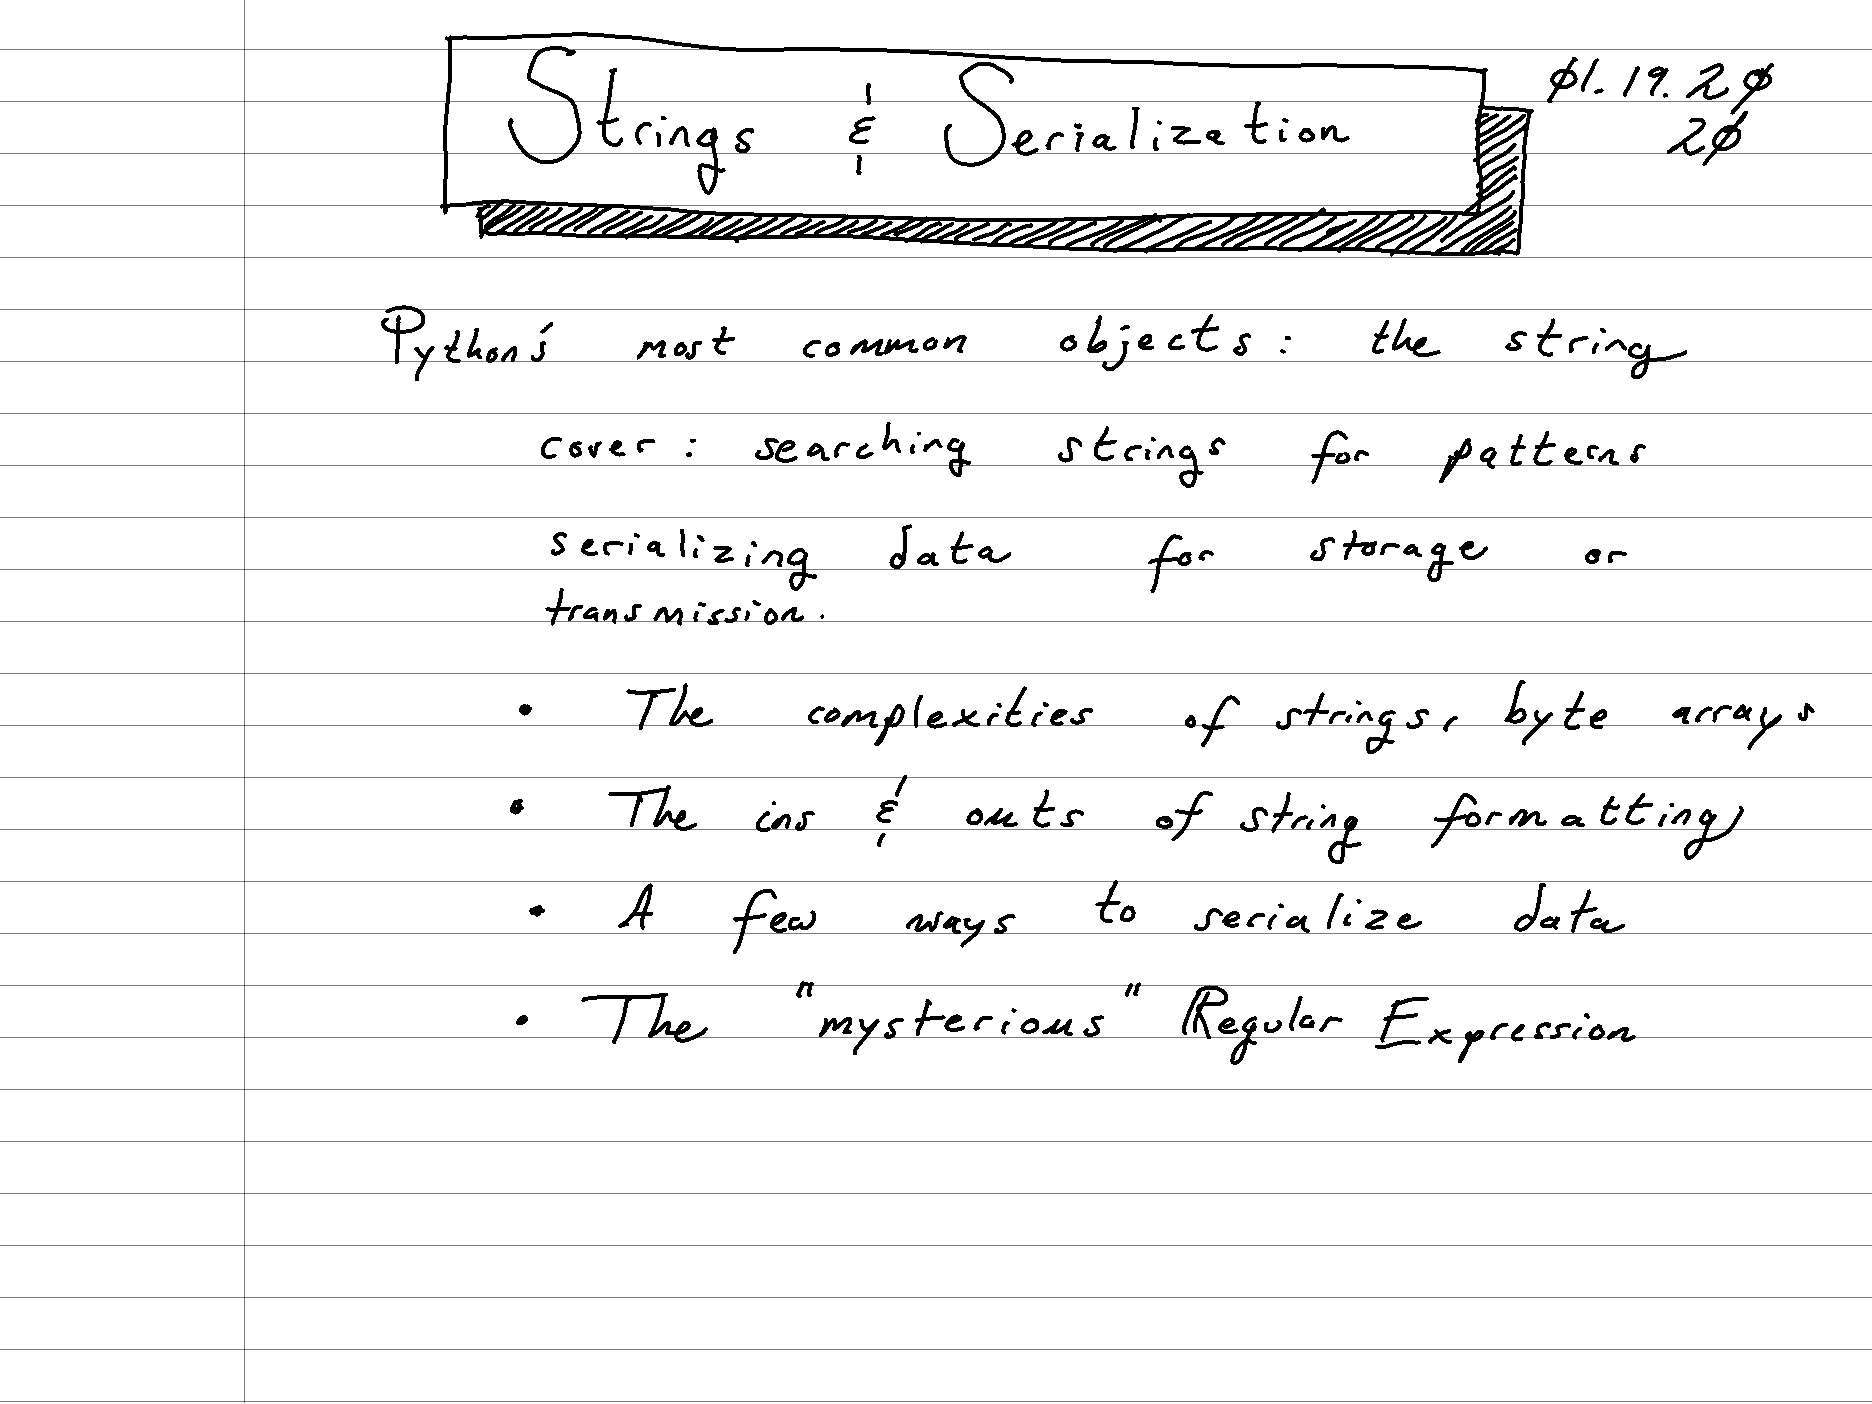 Strings & Serialization
01.19.20
20
Python's most common objects: the string
cover: searching strings for patterns
serializing data for storage or
transmission.
• The complexities of strings, byte arrays
• The ins & outs of string formatting
• A few ways to serialize data
• The "mysterious" Regular Expression